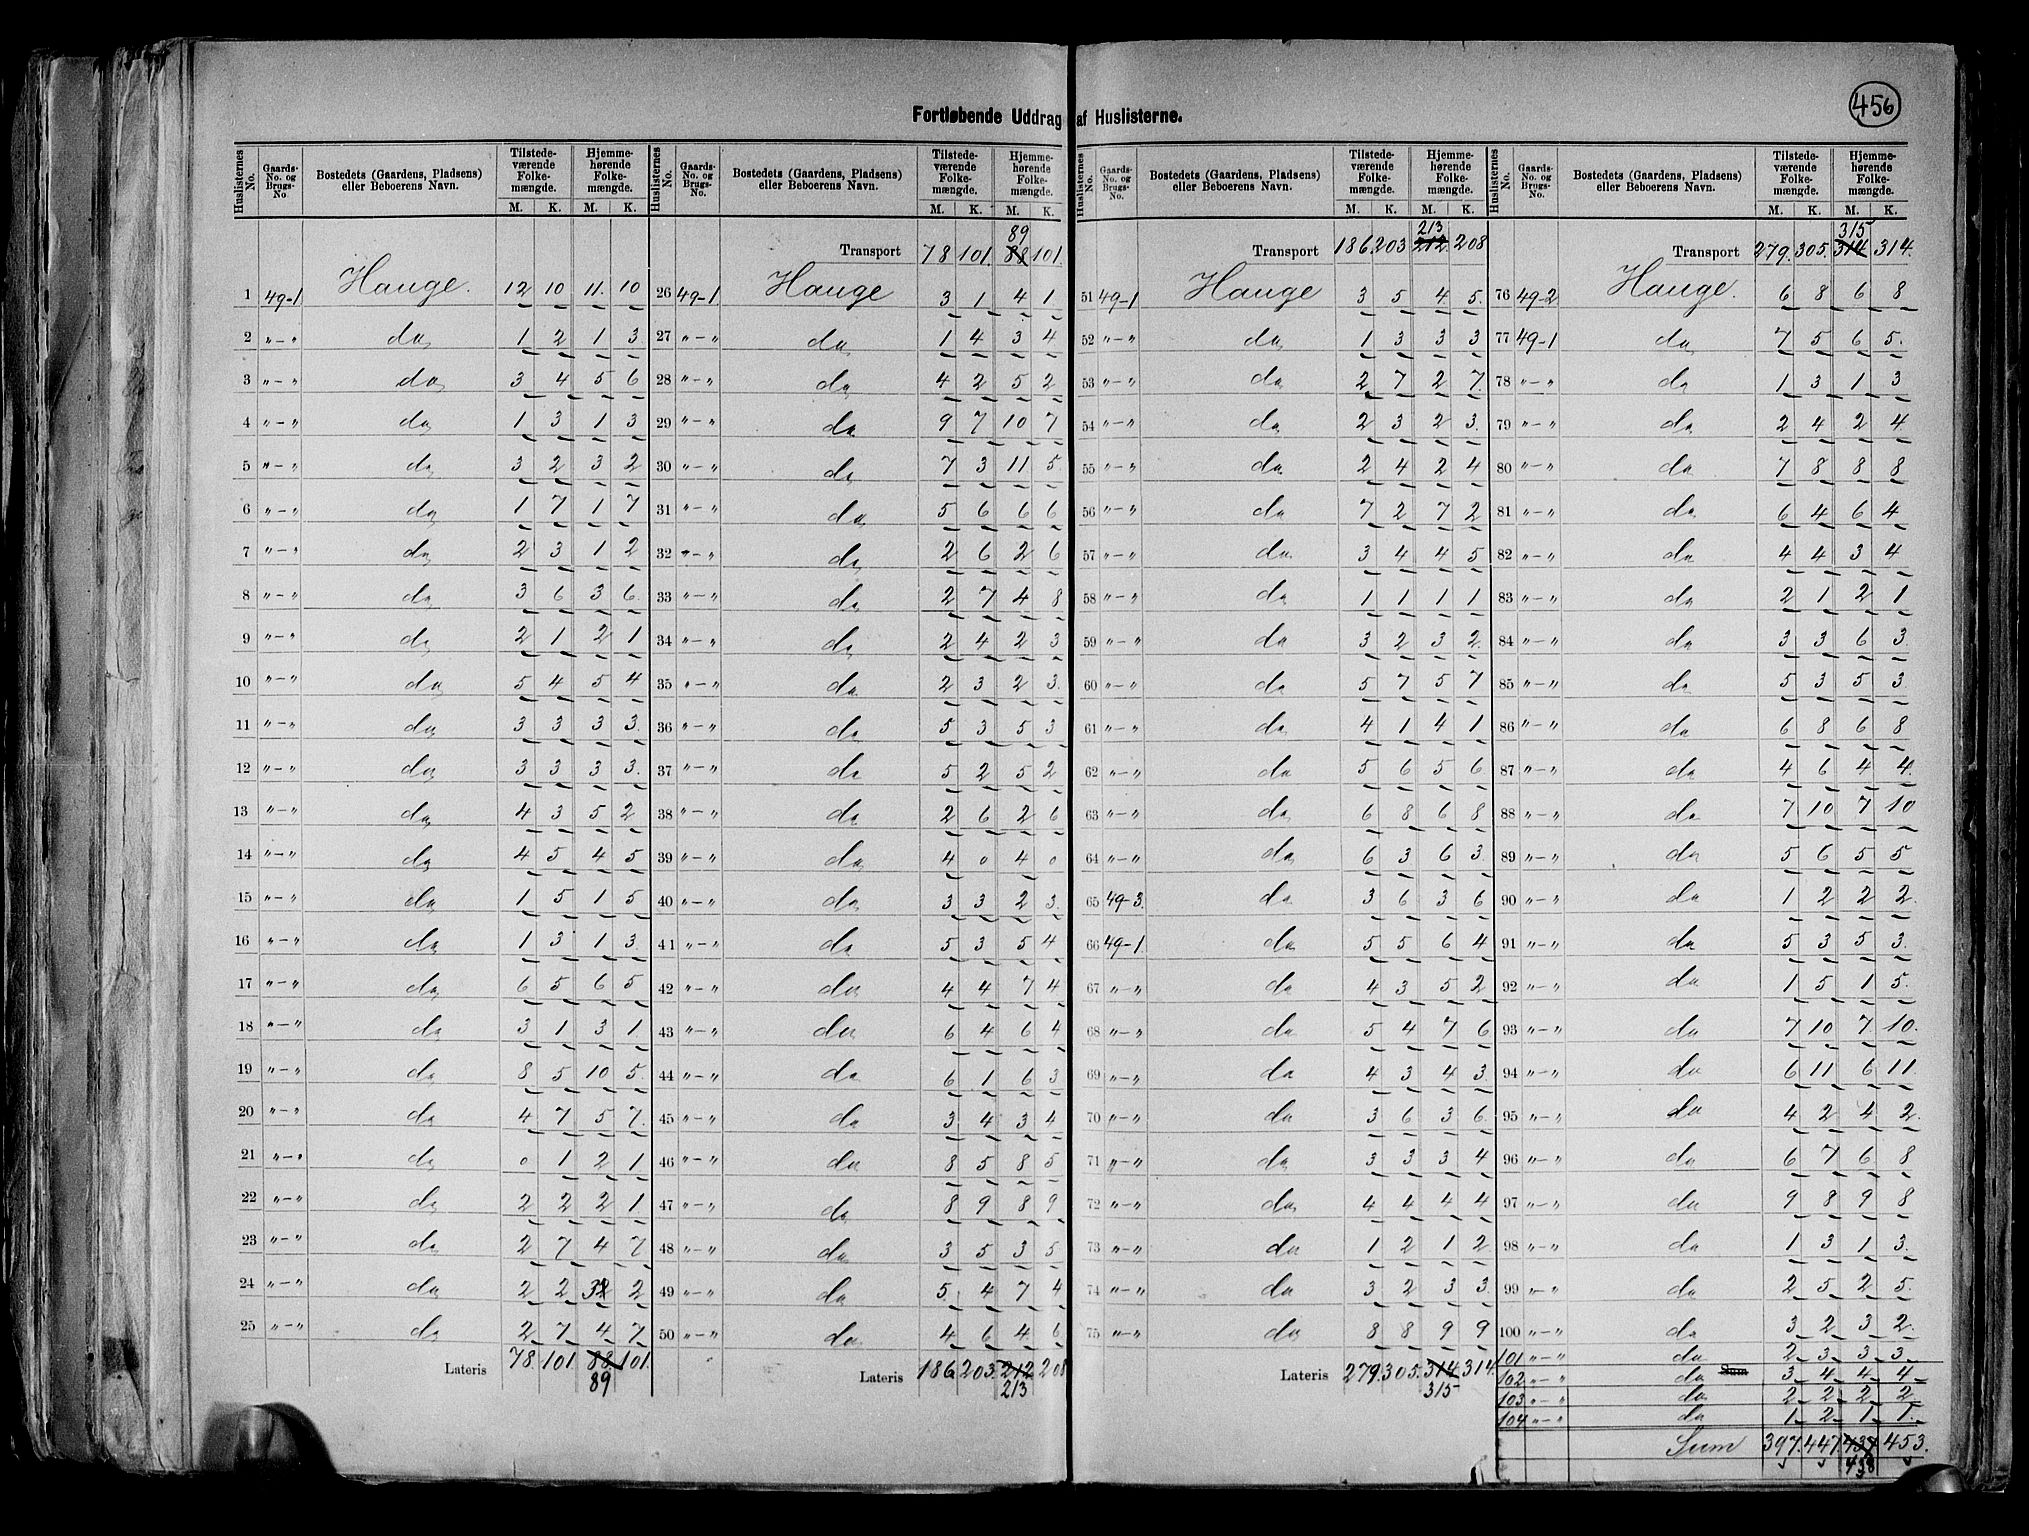 456
Fortløbende Uddrag af Huslisterne.
Huslisternes No. Gaards-No. og Brugs-No. Bostedets (Gaardens, Pladsens) eller Beboerens Navn. Tilstedeværende Folkemængde. M. K. Hjemmehørende Folkemængde. M. K.
1 49-1 Hauge. 12 10 11. 10
2 "-" do 1 2 1 3
3 "-" do 3 4 5 6
4 "-" do 1 3 1 3
5 "-" do 3 2 3 2
6 "-" do 1 7 1 7
7 "-" do 2 3 1 2
8 "-" do 3 6 3 6.
9 "-" do 2 1 2 1
10 "-" do 5 4 5 4
11 "-" do 3 3 3 3.
12 "-" do 3 3 3 3.
13 "-" do 4 3 5 2
14 "-" do 4 5 4 5
15 "-" do 1 5 1 5
16 "-" do 1 3 1 3.
17 "-" do 6 5 6 5
18 "-" do 3 1 3 1
19 "-" do 8 5 10 5
20 "-" do 4 7 5 7.
21 "-" do 0 1 2 1
22 "-" do 2 2 2 1
23 "-" do 2 7 4 7
24 "-" do 2 2 3 2
25 "-" do 2 7 4 7
Lateris 78. 101. 88. 101.
89
Huslisternes No. Gaards-No. og Brugs-No. Bostedets (Gaardens, Pladsens) eller Beboerens Navn. Tilstedeværende Folkemængde. M. K. Hjemmehørende Folkemængde. M. K.
89
Transport 78 101. 88 101.
26 49-1 Hauge 3 1 4 1
27 "-" do 1 4 3 4
28 "-" do 4 2 5 2
29 "-" do 9 7 10 7
30 "-" do 7 3 11 5.
31 "-" do 5 6 6 6
32 "-" do 2 6 2 6
33 "-" do 2 7 4 8
34 "-" do 2 4 2 3
35 "-" do 2 3 2 3.
36 "-" do 5 3 5 3
37 "-" do 5 2 5 2
38 "-" do 2 6 2 6
39 "-" do 4 0 4 0
40 "-" do 3 3 2 3.
41 "-" do 5 3 5 4
42 "-" do 4 4 7 4
43 "-" do 6 4 6 4
44 "-" do 6 1 6 3
45 "-" do 3 4 3 4
46 "-" do 8 5 8 5
47 "-" do 8 9 8 9
48 "-" do 3 5 3 5
49 "-" do 5. 4 7 4
50 "-" do 4 6 4 6
Lateris 186. 203. 212 208
213
Huslisternes No. Gaards-No. og Brugs-No. Bostedets (Gaardens, Pladsens) eller Beboerens Navn. Tilstedeværende Folkemængde. M. K. Hjemmehørende Folkemængde. M. K.
213
Transport 186. 203 212. 208
51 49-1 Hauge 3 5 4 5.
52 "-" do 1 3 3 3
53 "-" do 2 7 2 7.
54 "-" do 2 3 2 3.
55 "-" do 2 4 2 4
56 "-" do 7 2 7 2
57 "-" do 3 4 4 5
58 "-" do 1 1 1 1
59 "-" do 3 2 3 2.
60 "-" do 5 7 5 7
61 "-" do 4 1 4 1
62 "-" do 5 6 5 6
63 "-" do 6 8 6 8
64 "-" do 6 3 6 3.
65 49-3. do 3 6 3 6
66 49-1. do 5 5 6 4
67 "-" do 4 3 5 2
68 "-" do 5 4 7 6
69 "-" do 4 3 4 3.
70 "-" do 3 6 3 6.
71 "-" do 3 3 3 4
72 "-" do 4 4 4 4
73 "-" do 1 2 1 2
74 "-" do 3 2 3 3
75 "-" do 8 8 9 9
Lateris 279. 305. 314. 314.
315
Huslisternes No. Gaards-No. og Brugs-No. Bostedets (Gaardens, Pladsens) eller Beboerens Navn. Tilstedeværende Folkemængde. M. K. Hjemmehørende Folkemængde. M. K.
315
Transport 279. 305. 314 314.
76 49-2 Hauge. 6 8 6 8
77 49-1 do 7 5 6 5.
78 "-" do 1 3 1 3
79 "-" do 2 4 2 4.
80 "-" do 7 8 8 8
81 "-" do 6 4 6 4
82 "-" do 4 4 3 4
83 "-" do 2 1 2 1
84 "-" do 3 3 6 3.
85 "-" do 5 3 5 3
86 "-" do 6 8 6 8
87 "-" do 4 6 4 4.
88 "-" do 7 10 7 10
89 "-" do 5 6 5 5
90 "-" do 1 2 2 2.
91 "-" do 5 3 5 3.
92 "-" do 1 5 1 5.
93 "-" do 7 10 7 10.
94 "-" do 6 11 6 11
95 "-" do 4 2 4 2.
96 "-" do 6 7 6 8
97 "-" do 9 8 9 8
98 "-" do 1 3 1 3.
99 "-" do 2 5 2 5.
100 "-" do 3 2 3 2.
101 "-" do 2 3 3 3.
102 "-" do Sum 3 4 4 4
103 "-" do 2 2 2 2
104 "-" do 1 2 1 1.
Sum 397. 447. 437 453.
438